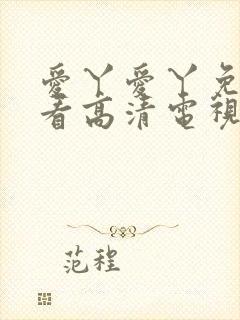 愛丫愛丫免
看高清電視
范程